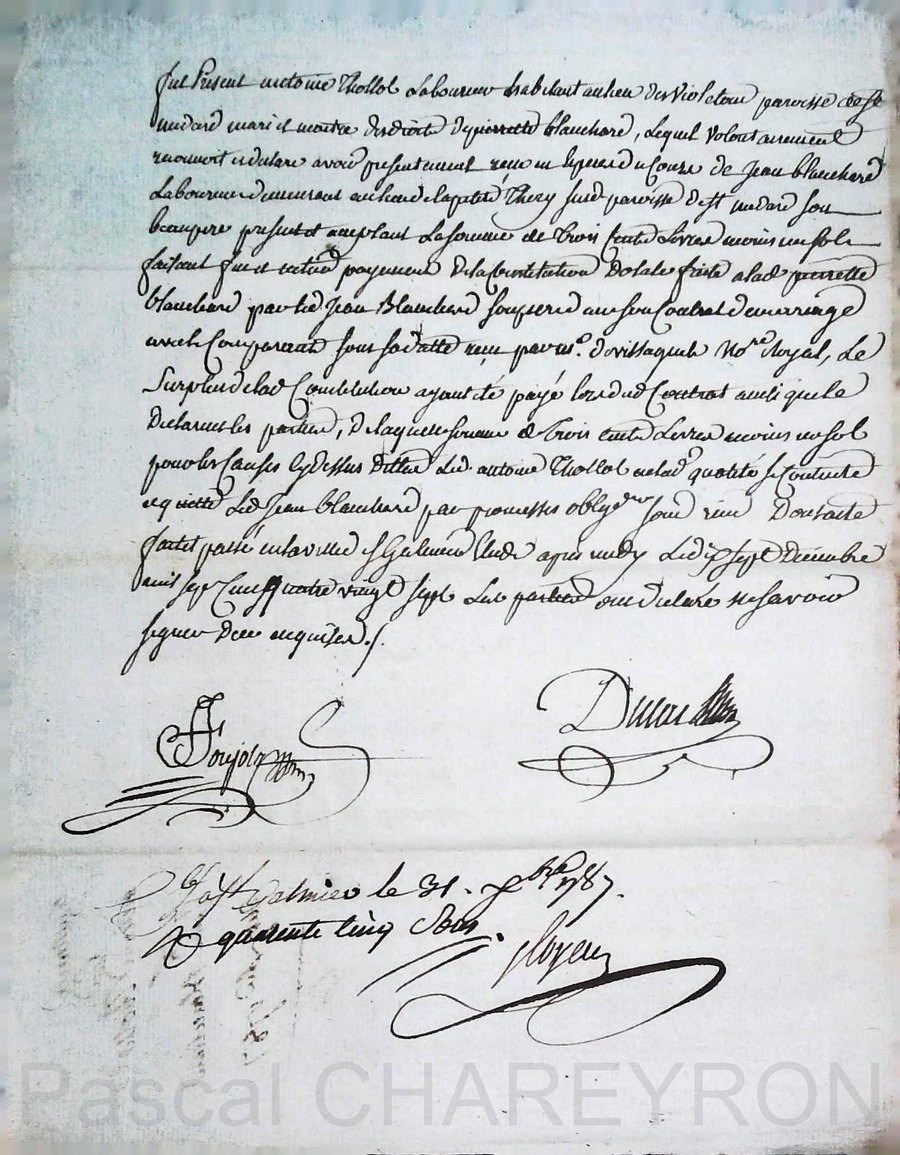 fut Present antoine Thollot Laboureur habitant au lieu des Violetons paroisse de St
medard mari et maitre des droits de pierrette blanchard, Lequel volontairement
reconnoit et declare avoir presentement recu en especes de Cours de Jean blanchard
Laboureur demeurant au lieu de la petite Thery susd. paroisse de St medard son
beaupere present et acceptant La somme de Trois Cents Livres moins un sol
faisant fin et entier payement de la Constitution dotale faite a lad. pierrette
blanchard par led. Jean Blanchard son pere en son Contrat de mariage
avec le Comparant sous sa datte recu par me. Notre Royal, Le
Surplus de lad. Constitution ayant été payé lors dud. Contrat ainsi que le
declarent les parties, De laquelle somme de Trois cents Livres moins un sol
pour les Causes cy dessus dittes Led. antoine Thollot en lad. qualité se Contente
et quitte Led. Jean blanchard par promesses oblig.ons soum. renon. Dont acte
fait et passé en la ville de St Galmier Etude apres midy Le dix sept Decembre
mil sept Cent quatre vingt sept Les parties ont declaré ne savoir
signer De ce enquises ./.
Ducros
a St Galmier le 31. Xbre 1787.
R quarente Cinq Sous.
Pascal CHAREYRON